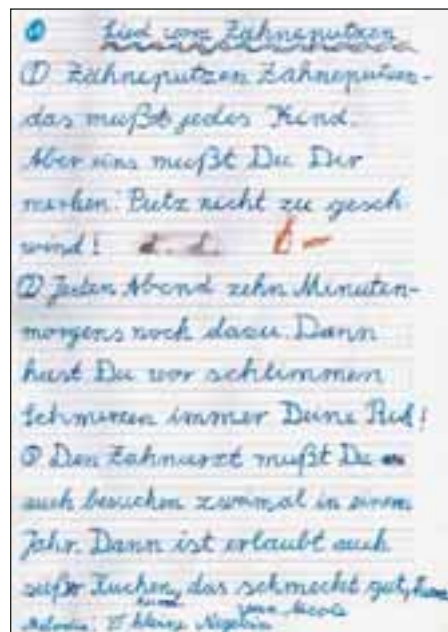 Lied vom Zähneputzen
① Zähneputzen Zähneputzen-
das mußt jedes Kind.
Aber eins mußt Du Dir
merken: Putz nicht zu gesch
wind! d. d. t-
② Jeden Abend zehn Minuten-
morgens noch dazu. Dann
hast Du vor schlimmen
Schmerzen immer Deine Ruh!
③ Den Zahnarzt mußt Du
auch besuchen zweimal in einem
Jahr. Dann ist erlaubt auch
süßer Kuchen, das schmeckt gut,
Melodie: kleine von Nicole